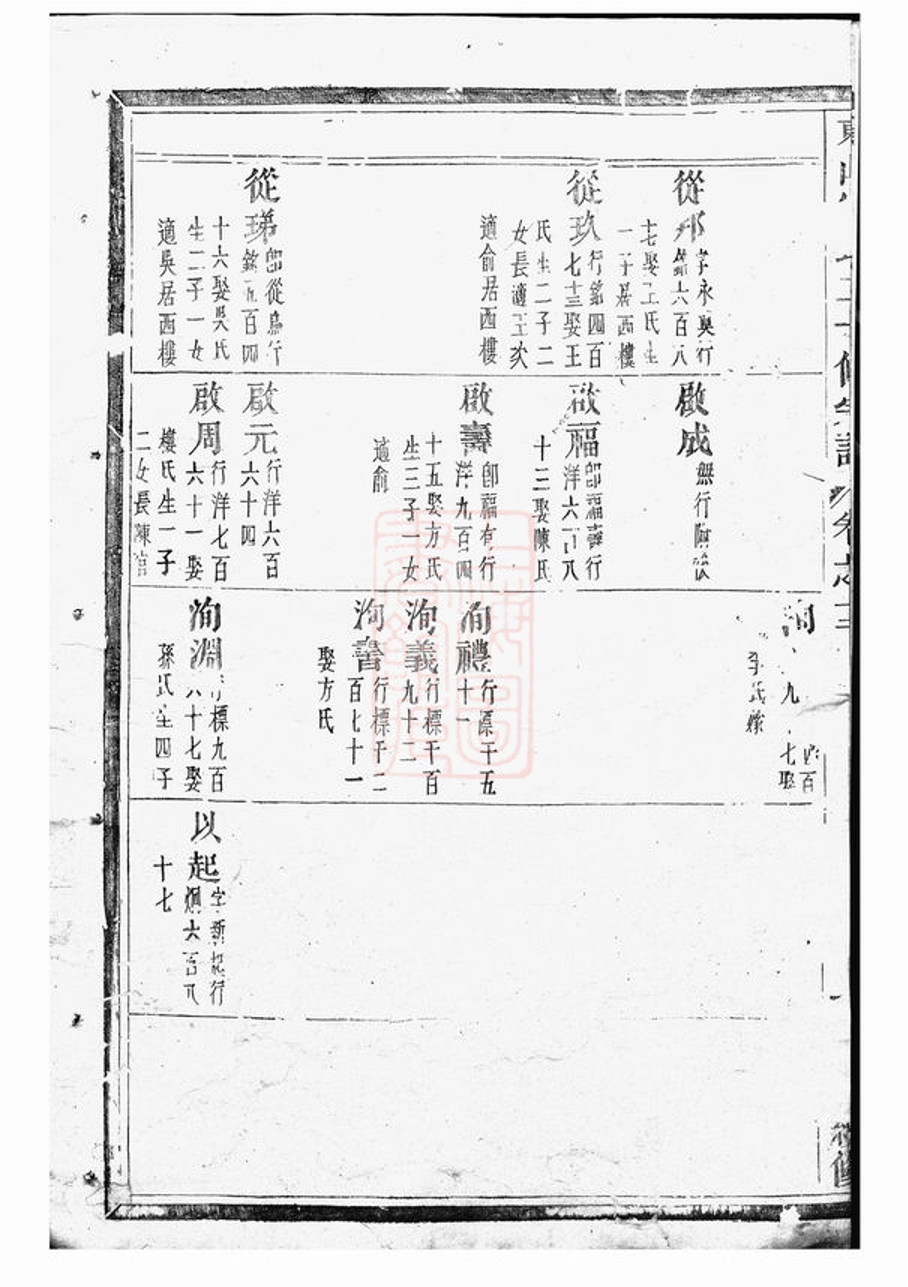 從邦
字永興行
銘六百八
十七娶王氏生
一子居西樓
從玖
行銘四百
七十三娶王
氏生二子二
女長適王次
適俞居西樓
從珶
即從為行
銘五百四
十六娶吳氏
生二子一女
適吳居西樓
啟成
無行附
啟福
即福壽行
洋六百八
十三娶陳氏
啟壽
即福有行
洋九百四
十五娶方氏
生三子一女
適俞
啟元
行洋六百
六十四
啟周
行洋七百
六十一娶
樓氏生一子
二女長陳宅
洵
九
百
七娶
李氏嫁
洵禮
行標千五
十一
洵義
行標千百
九十二
洵書
行標千二
百七十一
娶方氏
洵淵
行標九百
八十七娶
孫氏生四子
以起
字新起行
炯六百八
十七
東
修宗譜 卷之三
修